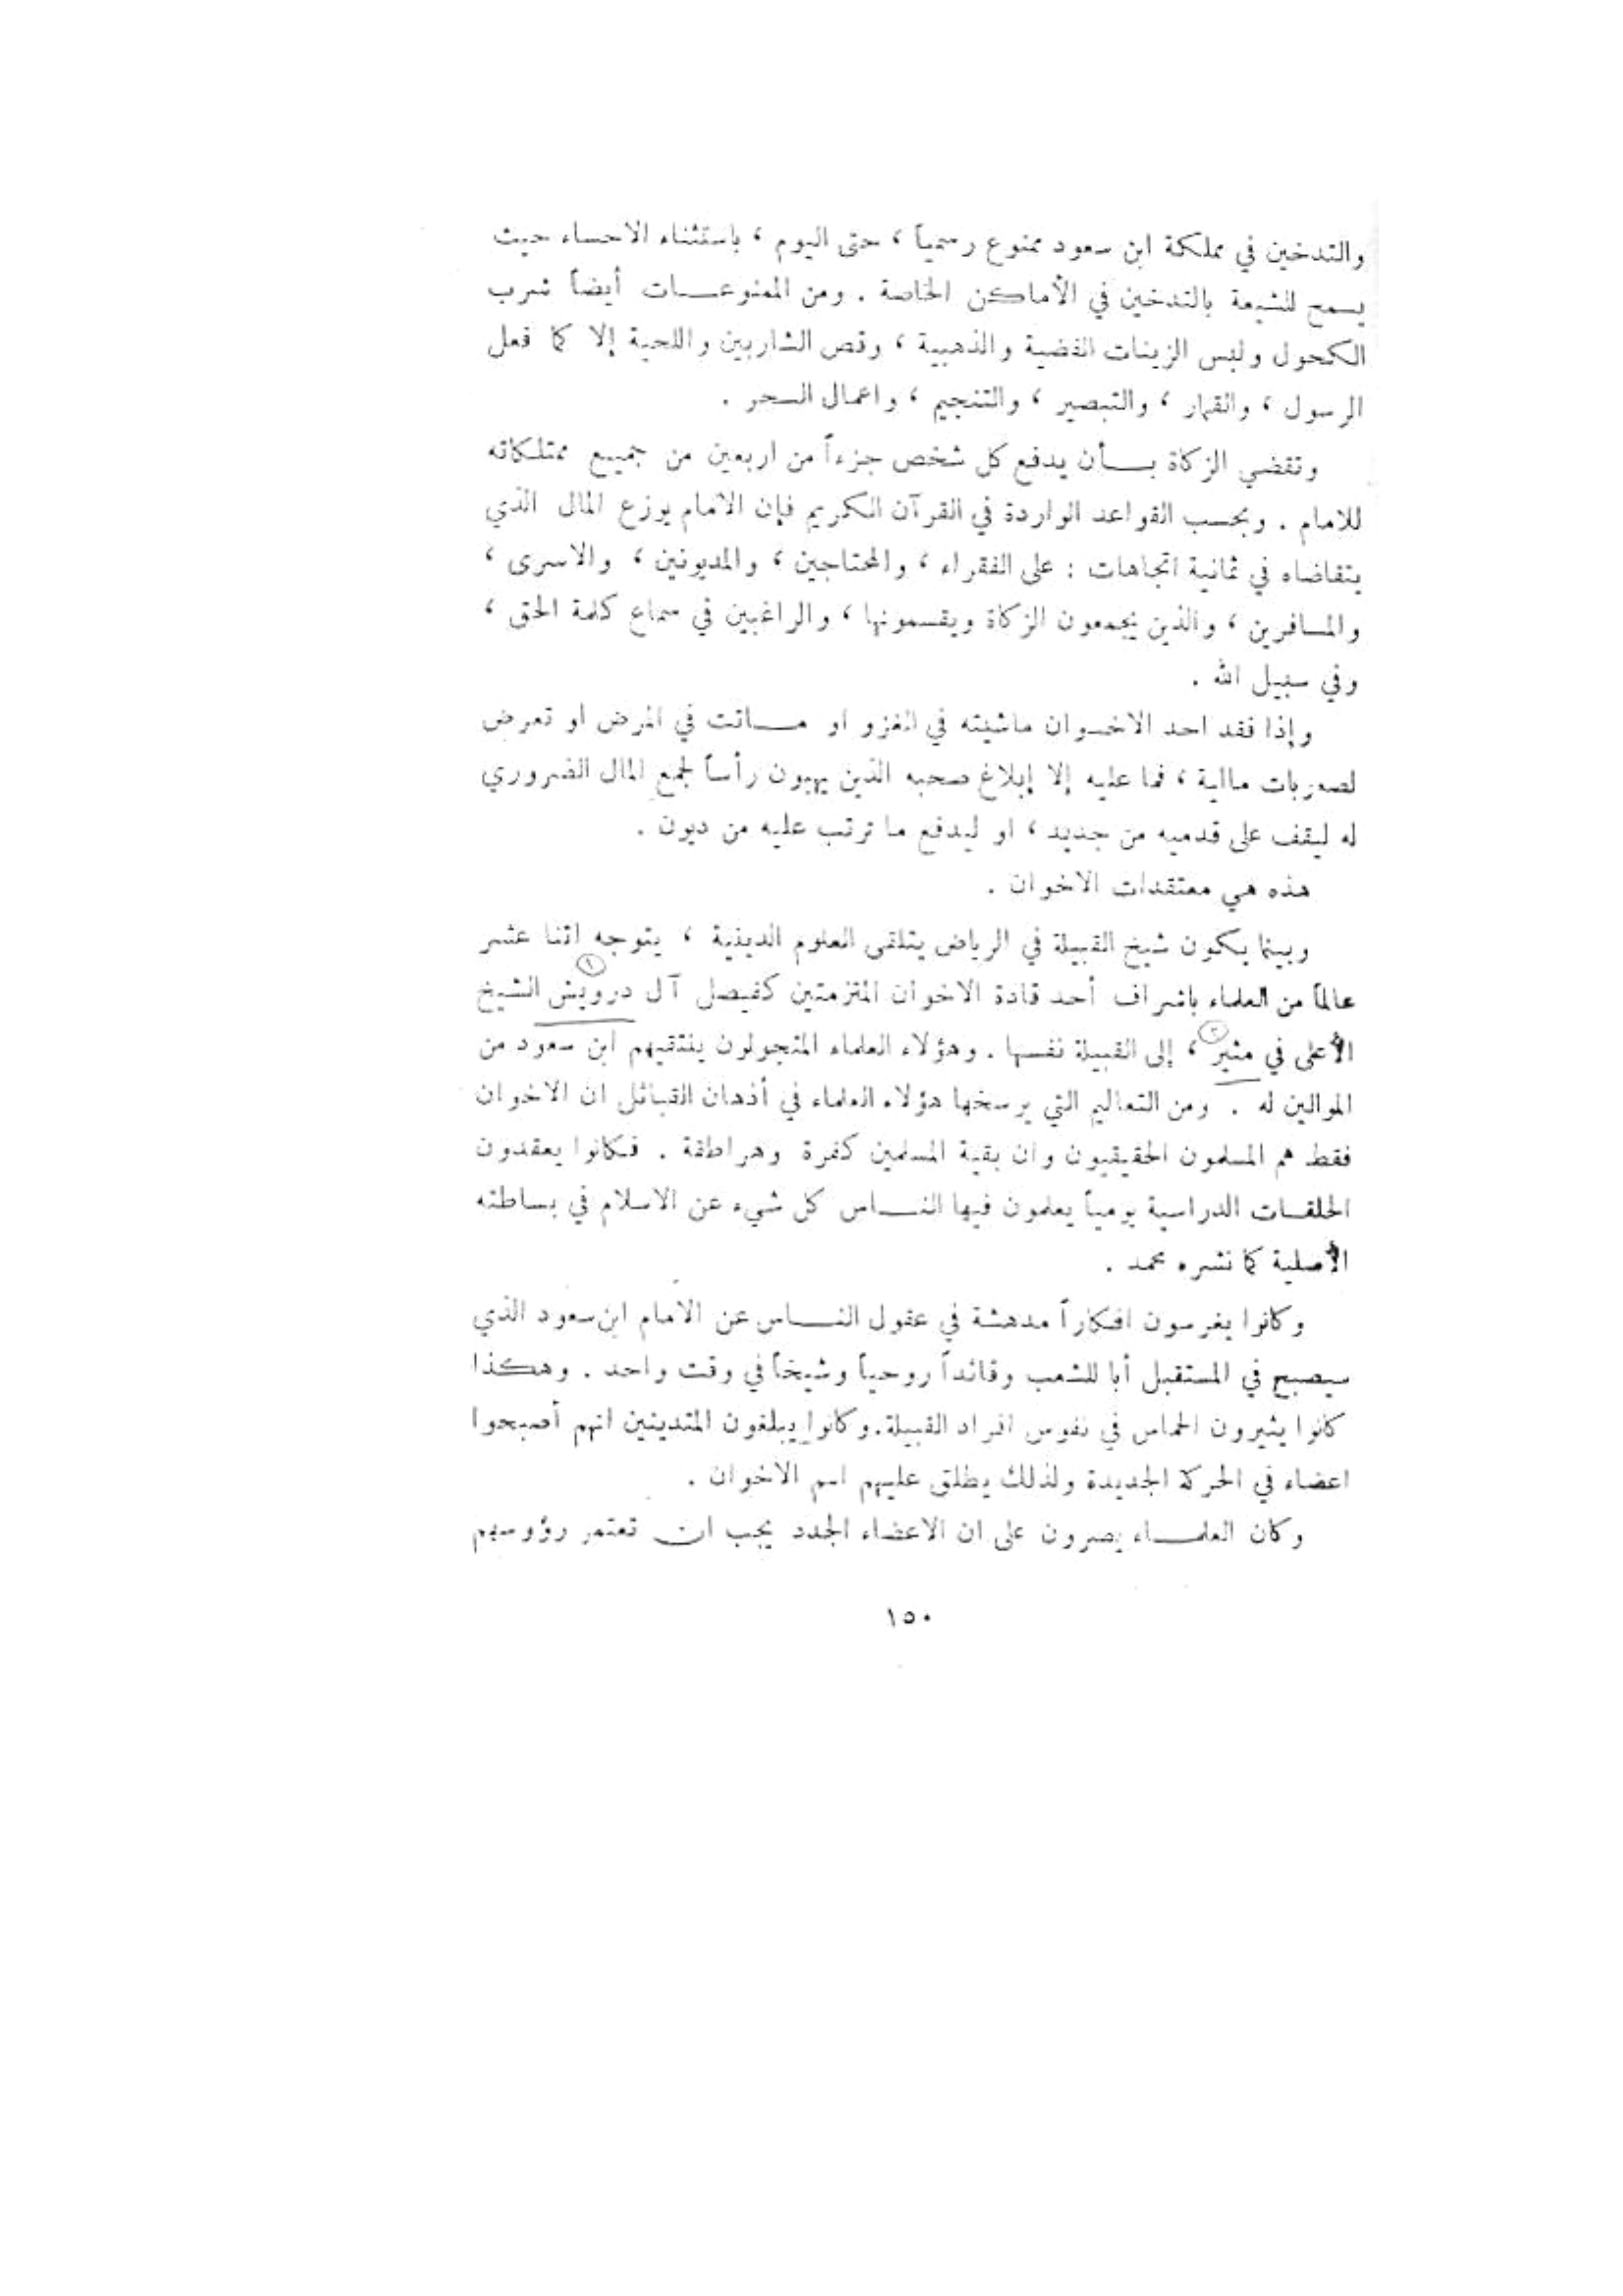 والتدخين في مملكة ابن سعود ممنوع رسمياً ، حتى اليوم ، باستثناء الاحساء حيث
يسمح للشيعة بالتدخين في الأماكن الخاصة . ومن الممنوعــات أيضاً شرب
الكحول ولبس الزينات الفضية والذهبية ، وقص الشاربين واللحية إلا كما فعل
الرسول ، والقمار ، والتبصير ، والتنجيم ، واعمال السحر .
وتقضي الزكاة بــأن يدفع كل شخص جزءاً من اربعين من جميع ممتلكاته
للامام . وبحسب القواعد الواردة في القرآن الكريم فإن الامام يوزع المال الذي
يتقاضاه في ثمانية اتجاهات : على الفقراء ، والمحتاجين ، والمديونين ، والاسرى ،
والمسافرين ، والذين يجمعون الزكاة ويقسمونها ، والراغبين في سماع كلمة الحق ،
وفي سبيل الله .
وإذا فقد احد الاخوان ماشيته في الغزو او مــاتت في المرض او تعرض
لصعوبات مالية ، فما عليه إلا إبلاغ صحبه الذين يهبون رأساً لجمع المال الضروري
له ليقف على قدميه من جديد ، او ليدفع ما ترتب عليه من ديون .
هذه هي معتقدات الاخوان .
وبينما يكون شيخ القبيلة في الرياض يتلقى العلوم الدينية ، يتوجه اثنا عشر
عالماً من العلماء باشراف أحد قادة الاخوان المتزمتين كفيصل آل درويش (١) الشيخ
الأعلى في مثير (٢) ، إلى القبيلة نفسها . وهؤلاء العلماء المتجولون ينتقيهم ابن سعود من
الموالين له . ومن التعاليم التي يرسخها هؤلاء العلماء في أذهان القبائل ان الاخوان
فقط هم المسلمون الحقيقيون وان بقية المسلمين كفرة وهراطقة . فكانوا يعقدون
الحلقــات الدراسية يومياً يعلمون فيها النــاس كل شيء عن الاسلام في بساطته
الأصلية كما نشره محمد .
وكانوا يغرسون افكاراً مدهشة في عقول النــاس عن الامام ابن سعود الذي
سيصبح في المستقبل أبا للشعب وقائداً روحياً وشيخاً في وقت واحد . وهكذا
كانوا يثيرون الحماس في نفوس افراد القبيلة. وكانوا يبلغون المتدينين انهم أصبحوا
اعضاء في الحركة الجديدة ولذلك يطلق عليهم اسم الاخوان .
وكان العلمــاء يصرون على ان الاعضاء الجدد يجب ان تعتمر رؤوسهم
١٥٠